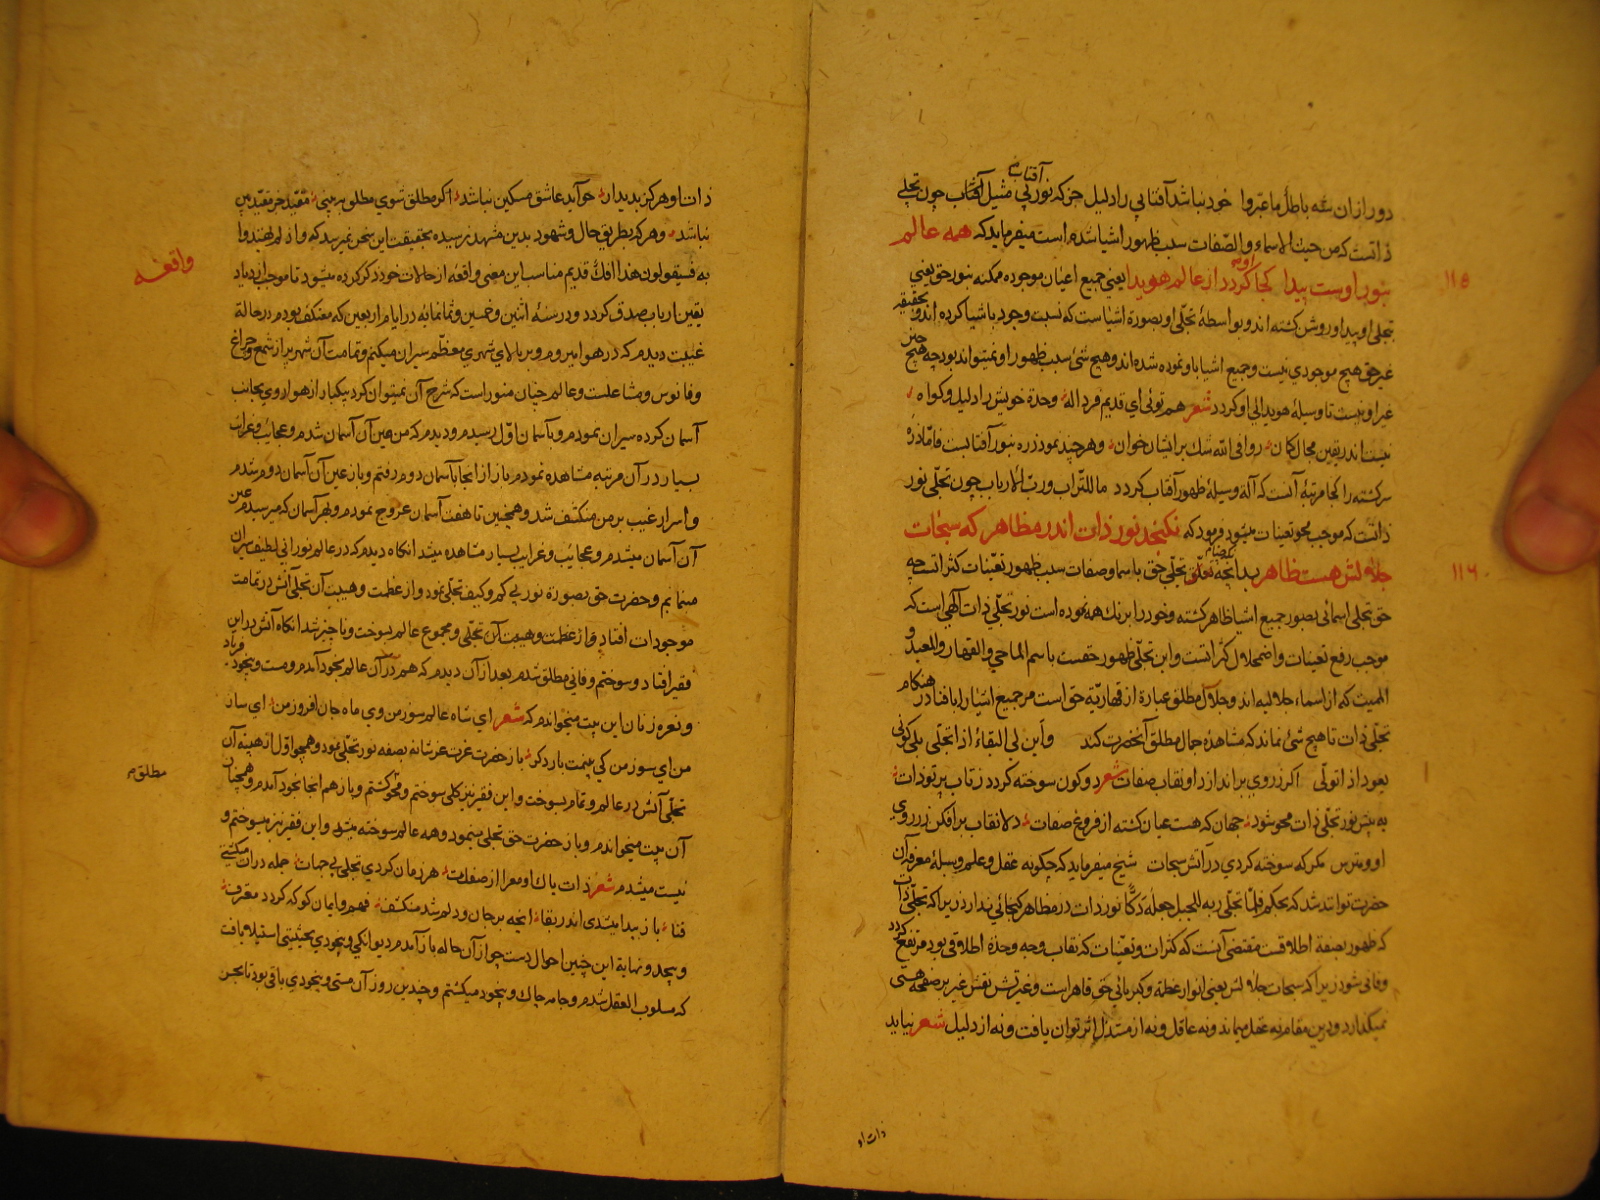 آفتاب
دور از ان شه باطل ما عبروا خود نباشد آفتابی را دلیل جز که نور بی مثیل آفتاب چون تجلی
ذاتست که من حیث الاسماء والصفات سبب ظهور اشیا شدم است میفرماید که همه عالم
بنور اوست پیدا کجا او کردد از عالم هویدا یعنی جمیع اعیان موجوده ممکنه بنور حق یعنی
۱۱۵
تجلی او پیدا و روشن کشته اند و بواسطهٔ تجلی او بصورة اشیاست که نسبت وجود باشیا کرده اند و حقیقه
غیر حق هیچ موجودی نیست و جمیع اشیا باو نموده شده اند و هیچ شئ سبب ظهور او نمیتواند بود چه هیچ چیز
غیر او نیست تا وسیلهٔ هویدایی او کردد شعر هم توئی ای قدیم فرد اله وحدة خویش را دلیل و کواه
نیست اندر یقین مجال کمان روا فی الله شك برایشان خوان و هر چند نمود زره بنور آفتابست فاما ذره
سرکشته را کجا مرتبهٔ آنست که آلة و وسیلهٔ ظهور آفتاب کردد ما للتراب ورب الارباب چون تجلی نور
ذاتست که موجب محو تعینات میشود فرمود که نکنجد نور ذات اندر مظاهر که سبحات
جلالش هست ظاهر بدانکه تعلق تجلی حق باسما و صفات سبب ظهور تعینات کثراتست چه
۱۱۶
حق تجلی اسمائی بصور جمیع اشیا ظاهر کشته و خود را برنك همه نموده است نور تجلی ذات آلهی است که
موجب رفع تعینات و اضمحلال کثراتست و این تجلی ظهور حقست باسم الماحی والقهار والمعید و
الممیت که از اسماء جلالیه اند و جلال مطلق عبارة از قهاریة حق است مر جمیع اشیا را بافنا در هنکام
تجلی ذات تا هیچ شئ نماند که مشاهدهٔ جمال مطلق آنحضرت کند واین لی البقاء اذا تجلی بلی کونی
یعود اذا تولی اکر ز روی براندازد او نقاب صفات شعر دو کون سوخته کردد ز تاب پرتو ذات
به پیش نور تجلی ذات محو شود جهان که هست عیان کشته از فروغ صفات دلا نقاب برافکن ز روی
او و مترس مکر که سوخته کردی در آتش سبحات شیخ میفرماید که چکونه عقل و علم وسیلهٔ معرفة آن
حضرت تواند شد که بحکم فلما تجلی ربه للجبل جعله دکا نور ذات در مظاهر کنجائی ندارد زیرا که تجلی ذات
که ظهور بصفة اطلاقست مقتضی آنست که کثرات و تعینات که نقاب وجه وحدة اطلاقی بود مرتفع کردد
و فانی شود زیرا که سبحات جلالش یعنی انوار عظمة و کبریائی حق قاهر است و غیرتش نقش غیر بر صفحه هستی
نمیکذارد و درین مقام نه عقل میماند و نه عاقل و نه از مستدل اثر توان یافت و نه از دلیل شعر نیاید
ذات او
ذات او هرکز بدیدار خو آید عاشق مسکین نباشد اکر مطلق شوی مطلق به بینی مقید جز مقید بین
نباشد و هر که بطریق حال و شهود بدین مشهد نرسیده بحقیقت این سخن نمیرسد که واذ لم یهتدوا
به فسیقولون هذا افك قدیم مناسب این معنی واقعهٔ از حالات خود ذکر کرده میشود تا موجب ازدیاد
واقعه
یقین ارباب صدق کردد و در سنهٔ اثنین و خمسین و ثمانمائه در ایام اربعین که معتکف بودم در حالة
غیبت دیدم که در هوا میروم و بر بالای شهری معظم سیران میکنم و تمامت آن شهر پر از شمع و چراغ
و فانوس و مشاعلست و عالم چنان منور است که شرح آن نمیتوان کرد بیکبار از هوا روی بجانب
آسمان کرده سیران نمودم و بآسمان اول رسیدم و دیدم که من عین آن آسمان شدم و عجائب و غرائب
بسیار در آن مرتبه مشاهده نمودم باز از انجا بآسمان دوم رفتم و باز عین آن آسمان دوم شدم
و اسرار غیب بر من منکشف شد و همچنین تا هفت آسمان عروج نمودم و بهر آسمان که میرسیدم عین
آن آسمان میشدم و عجایب و غرایب بسیار مشاهده میشد انکاه دیدم که در عالم نورانی لطیف سیران
مینمایم و حضرت حق بصورة نور بی کم و کیف تجلی نمود و از عظمت و هیبت آن تجلی آتش در تمامت
موجودات افتاد و از عظمت و هیبت آن تجلی و مجموع عالم بسوخت و ناچیز شد انکاه آتش در این
فقیر افتاد و سوختم و فانی مطلق شدم بعد از آن دیدم که هم در آن عالم بخود آمدم و مست و بیخود فریاد
و نعره زنان این بیت میخواندم که شعر ای شاه عالم سوز من وی ماه جان افروز من ای ساز
من ای سوز من کی بینمت بار دکر باز حضرت عزت عز شانه بصفه نور تجلی نمود و همچو اول از هیبة آن
تجلی آتش در عالم و تمام بسوخت و این فقیر نیز کلی سوختم و محو کشتم و باز هم انجا بخود آمدم و همچنان
مطلق م
آن بیت میخواندم و باز حضرت حق تجلی مینمود و همه عالم سوخته میشد و این فقیر نیز میسوختم و
نیست میشدم شعر ذات پاك او معرا از صفات هر زمان کردی تجلی بی جهات جمله ذرات میکشتی
فنا باز پیدا میشدی اندر بقا انچه بر جان و دلم شد منکشف فهم و ایمان کو که کردد معترف
و بیحد و نهایة این چنین احوال دست چو از آن حاله باز آمدم دیوانکی و بیخودی بحیثیتی استیلا یافت
که مسلوب العقل شدم و جامه چاك و بیخود میکشتم و چندین روز آن مستی و بیخودی باقی بود تا بحسن